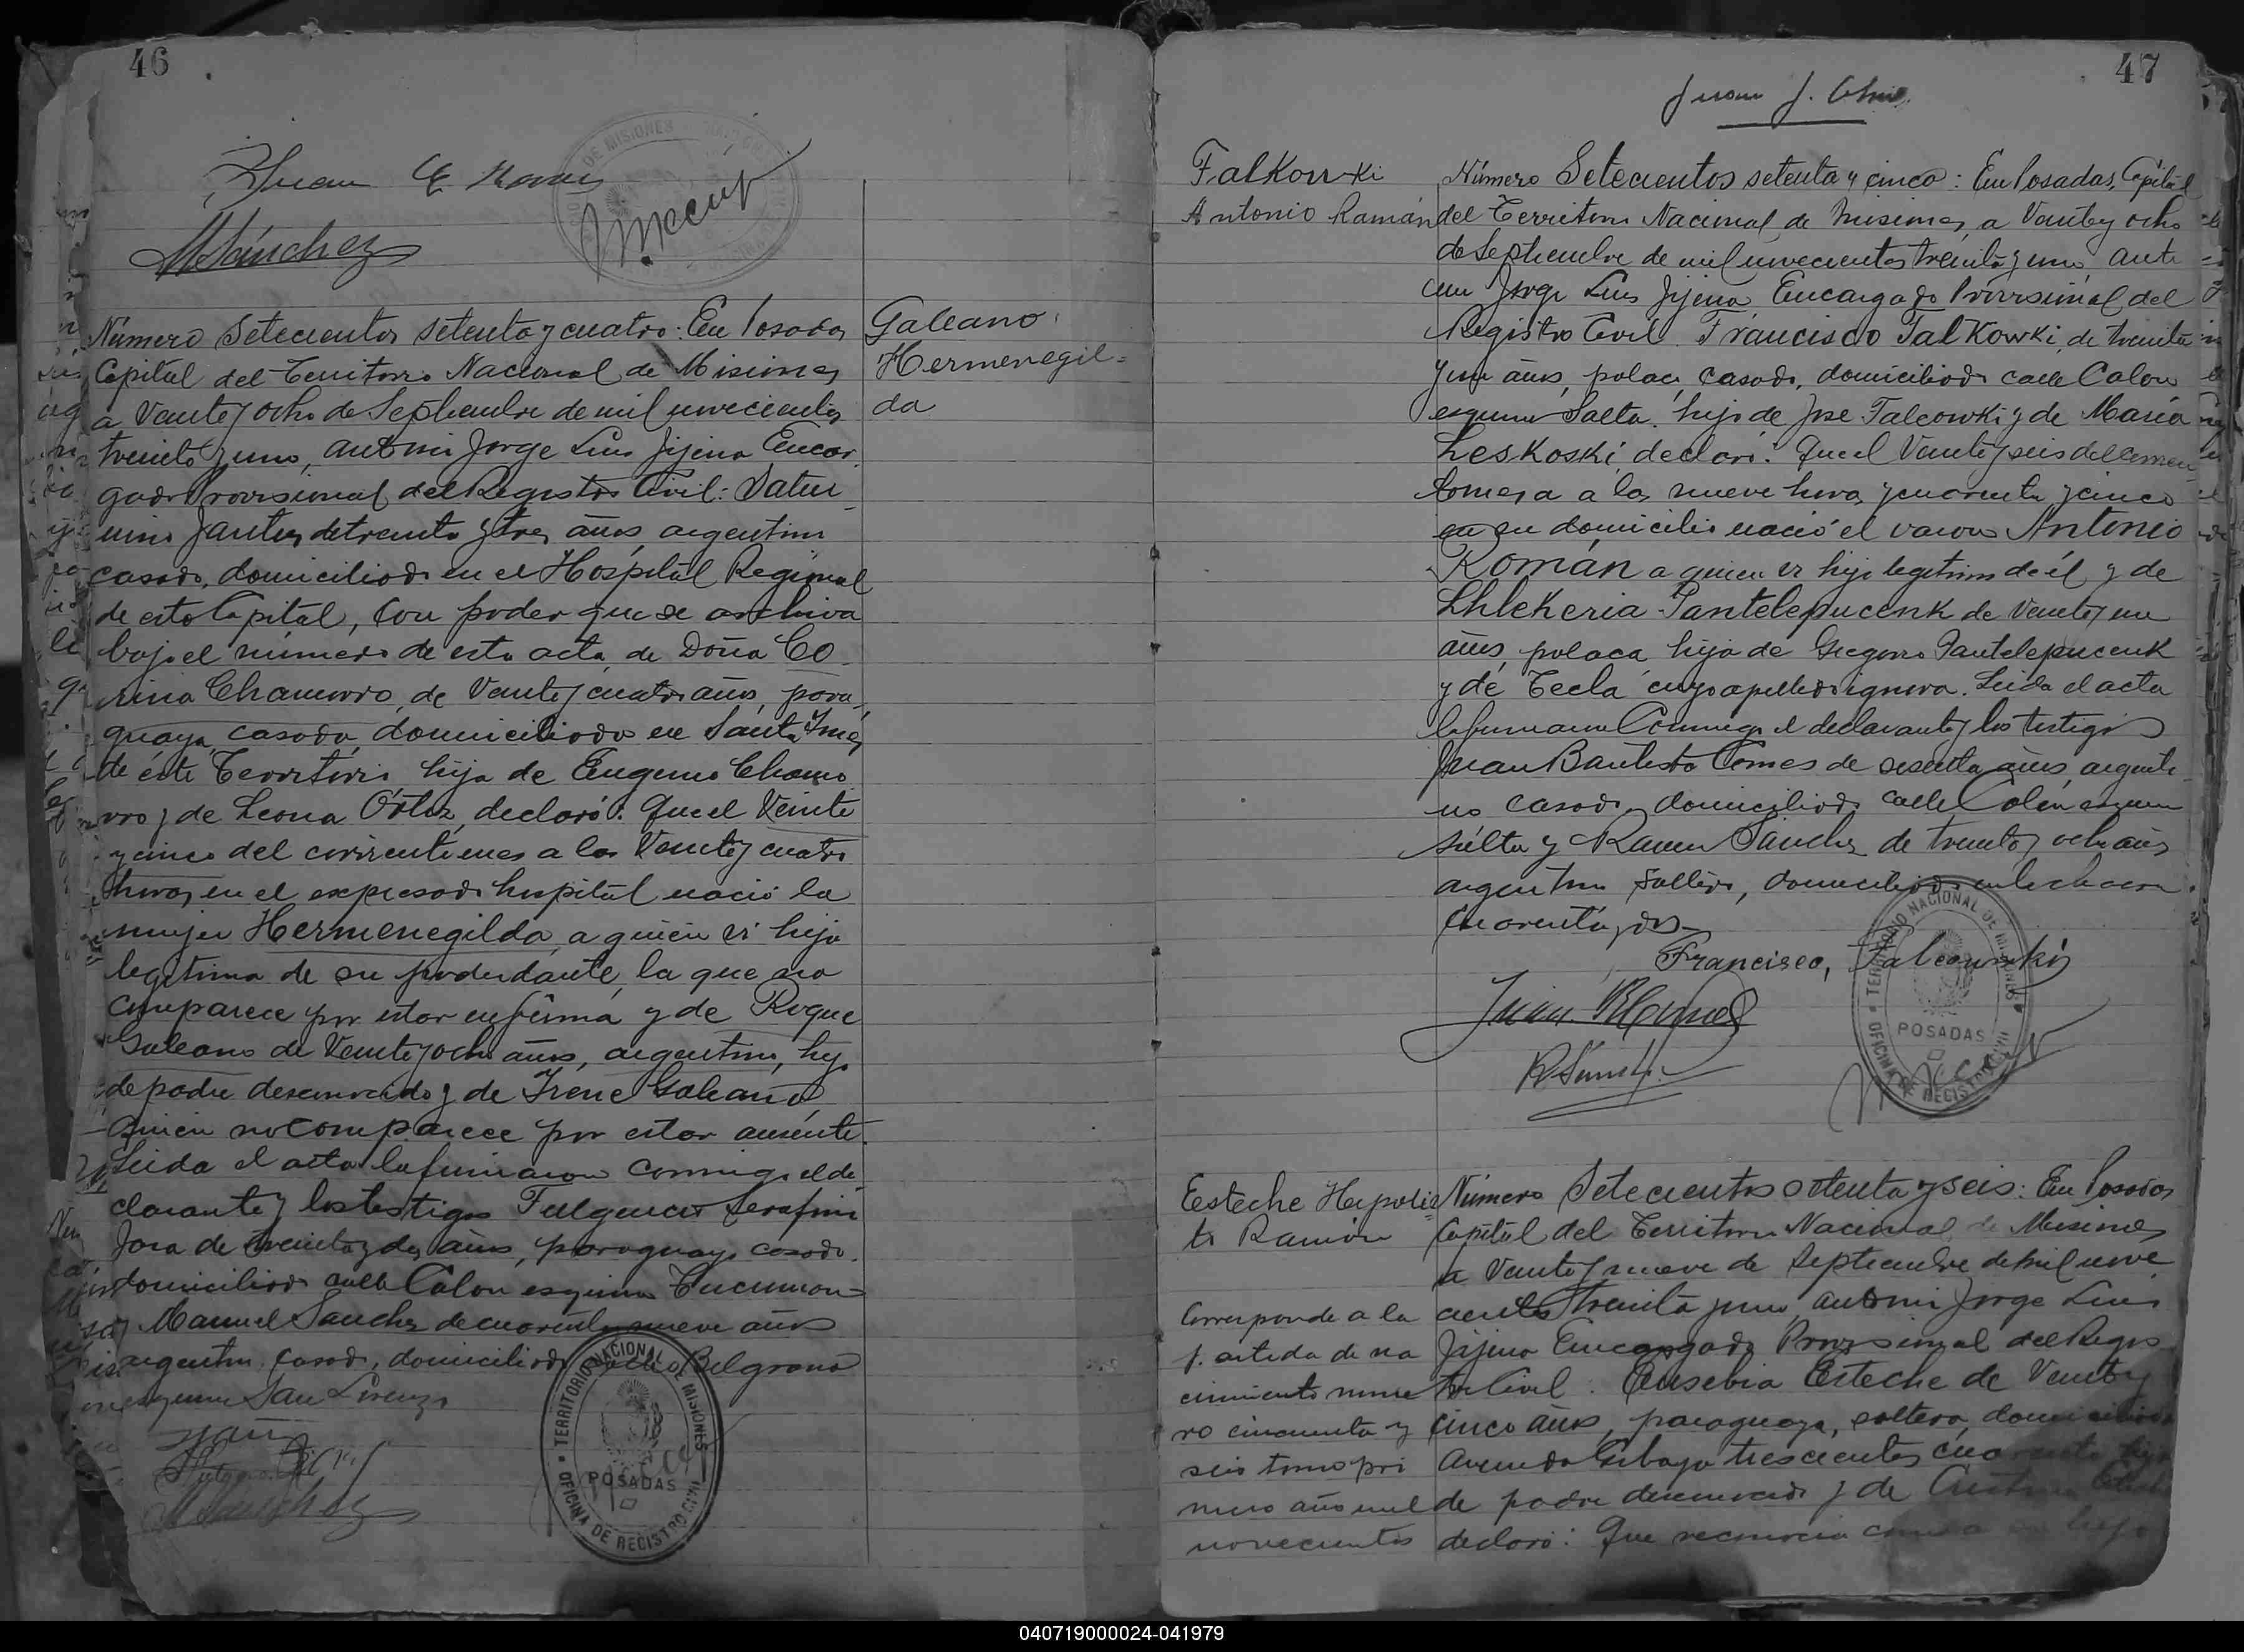 46
Juan
MSánchez
Número Setecientos setenta y cuatro: En Posadas
Capital del Territorio Nacional de Misiones
a veinte y ocho de Septiembre de mil novecientos
treinta y uno, ante mi Jorge Luis Jijena Encar
gado Provisional del Registro Civil: Satur
nino de treinta y tres años argentino
casado, domiciliado en el Hospital Regional
de esta Capital, con poder que se archiva
bajo el número de esta acta de Doña Co
rina Chamorro, de veinte y cuatro años, para
guaya, casada, domiciliada en Santa Inés
de éste Territorio hija de Eugenio Chamo
rro y de Leona Ortiz, declaró: Que el veinte
y cinco del corriente mes a las veinte y cuatro
horas en el expresado hospital nació la
mujer Hermenegilda a quien vi hija
legitima de su poderdante, la que no
comparece por estar enferma y de Roque
Galeano de veinte y ocho años, argentino, hijo
de padre desconocido y de Irene Galeano
quien no comparece por estar ausente.
Leida el acta la firmaron conmigo el de
clarante y los testigos Fulgencio Serafin
Jara de treinta y dos años, paraguayo casado.
domiciliado calle Colon esquina Tucuman
y Manuel Sanchez de cuarenta nueve años
argentino, casado, domiciliado calle Belgrano
esquina San Lorenzo
MSanchez
TERRITORIO NACIONAL DE MISIONES
POSADAS
OFICINA DE REGISTRO CIVIL
Galeano
Hermenegil=
da
47
Juan J.
Falkowski
Antonio Ramán
Número Setecientos setenta y cinco: En Posadas, Capital
del Territorio Nacional de Misiones, a veinte y ocho
de Septiembre de mil novecientos treinta y uno, ante
mi Jorge Luis Jijena Encargado Provisional del
Registro Civil. Francisco Falkowki, de treinta
y un años, polaco, casado, domiciliado calle Colon
esquina Salta, hijo de Jose Falcowki y de Maria
Leskoski, declaró: Que el veinte y seis del corrien
te mes a a las nueve horas y cuarenta y cinco
en su domicilio nació el varon Antonio
Román a quien vi hijo legitimo de él y de
Lhlekeria Pantelepucenk de veinte y un
años, polaca, hija de Gregorio Pantelepucenk
y de Tecla cuyo apellido ignora. Leida el acta
la firmaron Conmigo el declarante y los testigos
Juan Bautista Gomes de sesenta años, argenti
no casado, domiciliado calle Colón esquina
Salta y Ramon Sanchez de treinta y ocho años
argentino soltero, domiciliado en la chacra
cuarenta y dos
Francisco, Falcowski
TERRITORIO NACIONAL DE MISIONES
POSADAS
OFICINA DE REGISTRO CIVIL
Eesteche Hepoli=
to Ramón
Corresponde a la
partida de na
cimiento nume
ro cincuenta y
seis tomo pri
mero año mil
novecientos
Número Setecientos setenta y seis: En Posadas
Capital del Territorio Nacional de Misiones
a veinte y nueve de Septiembre de mil nove
cientos treinta y uno, ante mi Jorge Luis
Jijena Encargado Provisional del Regis
tro Civil: Eusebia Esteche de veinte y
cinco años, paraguaya, soltera, domiciliada
Avenida trescientos cuarenta hija
de padre desconocido y de
declaró: Que reconocia como a su hijo
040719000024-041979